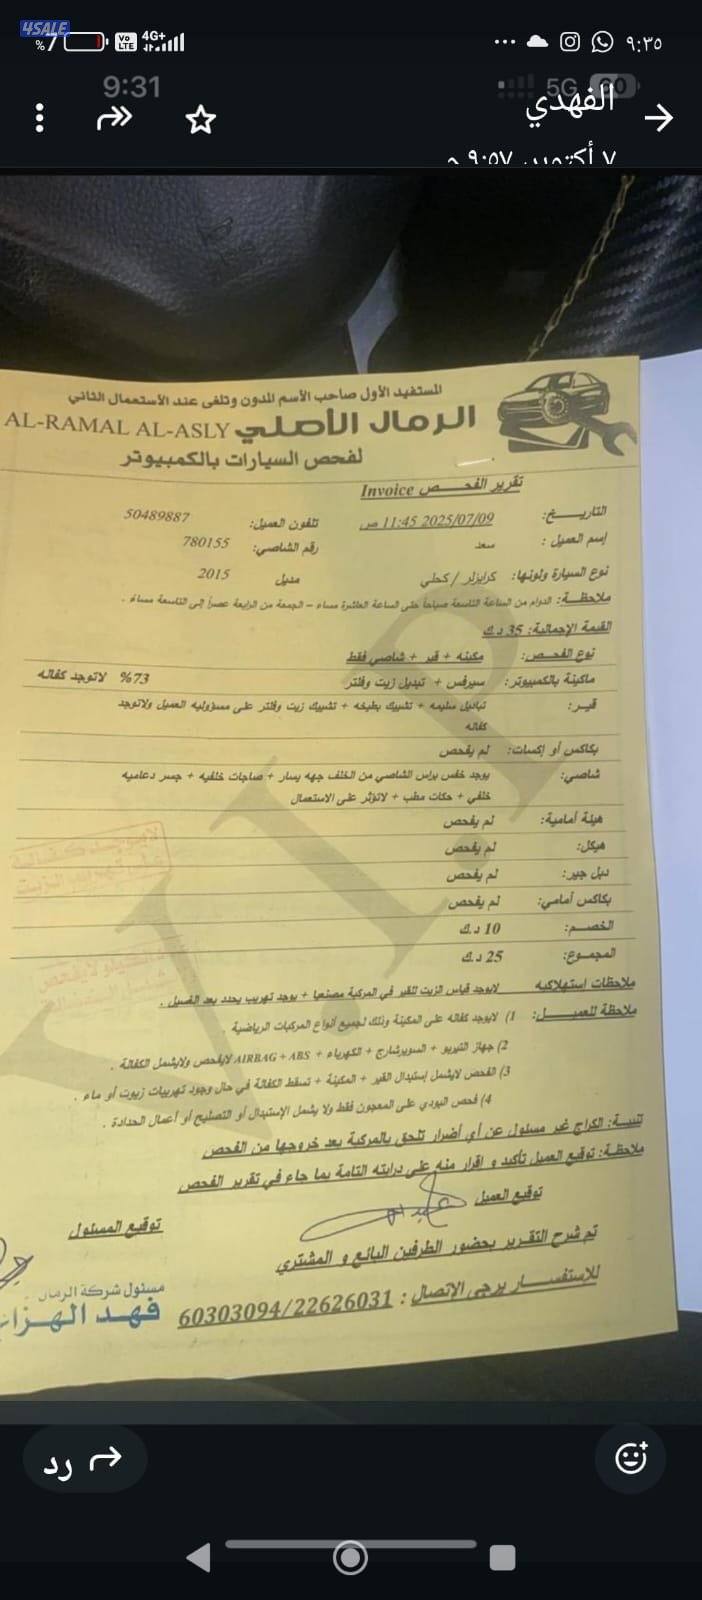 4SALE
%7
Vo LTE
4G+
٩:٣٥
9:31
5G
60
الفهدي
٧ أكتوبر، ٩:٥٧ م
المستفيد الأول صاحب الأسم المدون وتلغى عند الأستعمال الثاني
AL-RAMAL AL-ASLY الرمال الأصلي
لفحص السيارات بالكمبيوتر
تقرير الفحص Invoice
التاريخ: 2025/07/09 11:45 ص تلفون العميل: 50489887
إسم العميل: سعد رقم الشاصي: 780155
نوع السيارة ولونها: كرايزلر / كحلي مديل 2015
ملاحظة: الدوام من الساعة التاسعة صباحاً حتى الساعة العاشرة مساء - الجمعة من الرابعة عصراً إلى التاسعة مساءً .
القيمة الإجمالية: 35 د.ك
نوع الفحص: مكينه + قير + شاصي فقط
ماكينة بالكمبيوتر: سيرفس + تبديل زيت وفلتر 73% لاتوجد كفاله
قير: تباديل سليمه + تشييك بطيخه + تشييك زيت وفلتر على مسؤوليه العميل ولاتوجد
كفاله
بكاكس أو إكسات: لم يفحص
شاصي: يوجد خفس براس الشاصي من الخلف جهه يسار + صاجات خلفيه + جسر دعاميه
خلفي + حكات مطب + لاتؤثر على الاستعمال
هيئة أمامية: لم يفحص
هيكل: لم يفحص
دبل جير: لم يفحص
بكاكس أمامي: لم يفحص
الخصم: 10 د.ك
المجموع: 25 د.ك
ملاحظات استهلاكيه لايوجد قياس الزيت للقير في المركبة مصنعيا + يوجد تهريب يحدد بعد الغسيل .
ملاحظة للعميل: 1) لايوجد كفاله على المكينة وذلك لجميع أنواع المركبات الرياضية .
2) جهاز التيربو + السوبرشارج + الكهرباء + AIRBAG + ABS لايفحص ولايشمل الكفالة .
3) الفحص لايشمل إستبدال القير + المكينة + تسقط الكفالة في حال وجود تهريبات زيوت أو ماء .
4) فحص البودي على المعجون فقط ولا يشمل الإستبدال أو التصليح أو أعمال الحدادة .
تنبيه: الكراج غير مسئول عن أي أضرار تلحق بالمركبة بعد خروجها من الفحص
ملاحظة: توقيع العميل تأكيد و اقرار منه على درايته التامة بما جاء في تقرير الفحص
توقيع العميل
توقيع المسئول
تم شرح التقرير بحضور الطرفين البائع و المشتري
مسئول شركة الرمال
فهد الهزاع
للإستفسار يرجى الاتصال : 60303094/22626031
V.I.P
لايوجد كفالة
على تهريب الزيت
رد